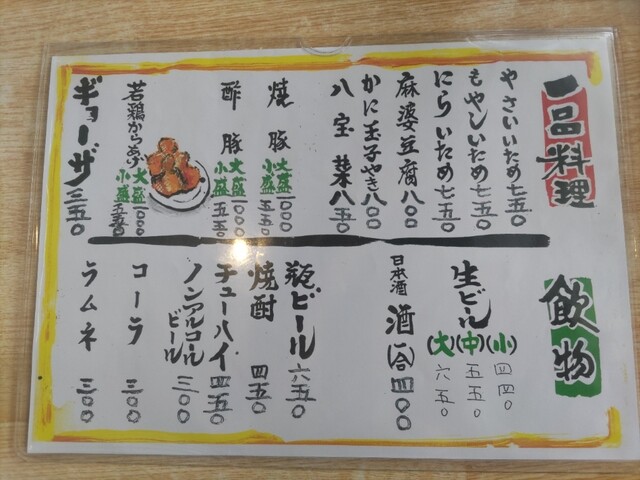 一品料理
やさいいため七五〇
もやしいため七五〇
にらいため七五〇
麻婆豆腐八〇〇
かに玉子やき八〇〇
八宝菜八五〇
焼豚 大盛一〇〇〇
小盛五五〇
酢豚 大盛一〇〇〇
小盛五五〇
若鶏からあげ 大盛一〇〇〇
小盛
ギョーザ三五〇
飲物
生ビール
(小)四四〇
(中)五五〇
(大)六五〇
日本酒
酒(一合)四〇〇
瓶ビール六五〇
焼酎四五〇
チューハイ四五〇
ノンアルコール
ビール三〇〇
コーラ三〇〇
ラムネ三〇〇